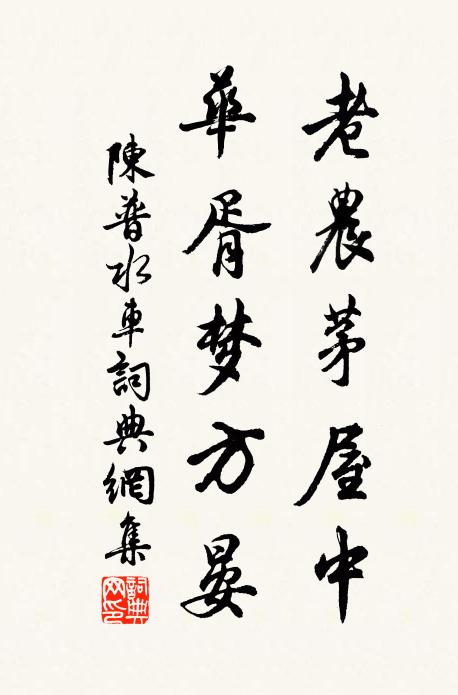 老農茅屋中
華胥梦方晏
陳普水車詞典網集
詞典网印